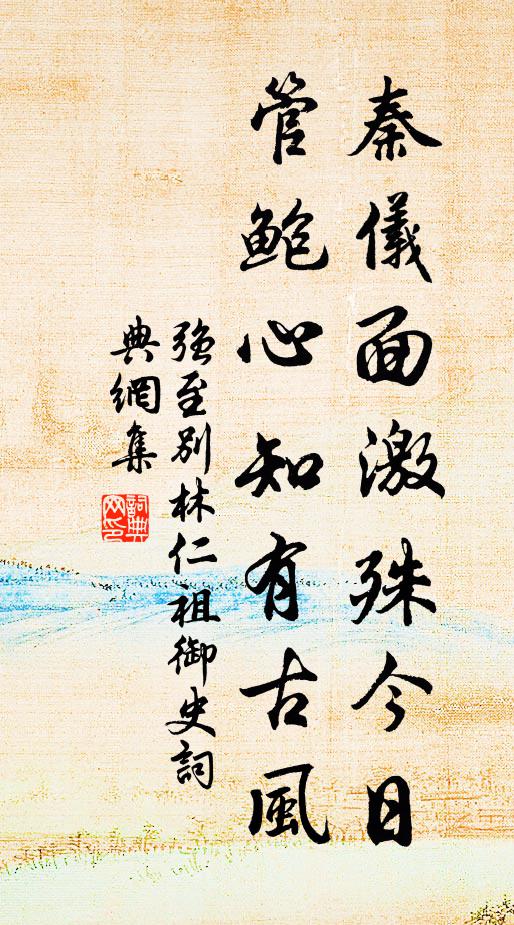 秦儀面激殊今日
管鮑心知有古風
強至別林仁祖御史詞
典網集
詞典
網印